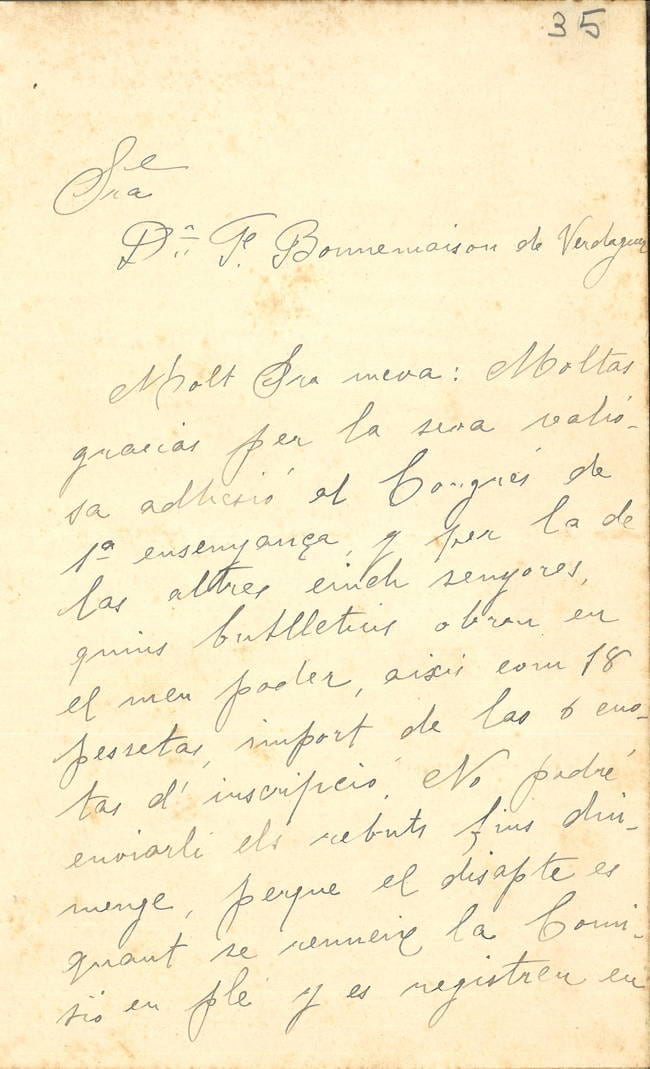 35
Sra
Dª F. Bonnemaison de Verdaguer
Molt Sra meva: Moltas
gracias per la seva valió-
sa adhesió al Congrés de
1ª ensenyança, y per la de
las altres cinch senyores,
quins butlletins obran en
el meu poder, aixis com 18
pessetas, import de las 6 cuo-
tas d' inscripció. No podré
enviarli els rebuts fins diu-
menge, perque el disapte es
quant se reuneix la Comi-
sió en plé y es registren en